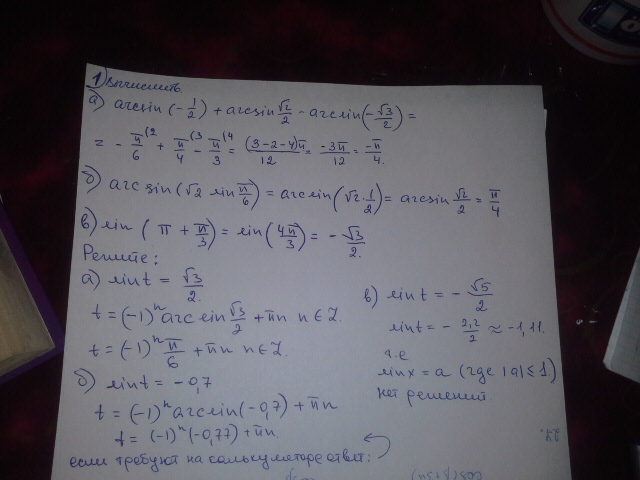 1) Вычислить.
а) arcsin (-1/2) + arcsin √2/2 - arcsin (-√3/2) =
= - π/6 (2 + π/4 (3 - π/3 (4 = (3-2-4)π/12 = -3π/12 = -π/4.
б) arcsin (√2 sin π/6) = arcsin (√2·1/2) = arcsin √2/2 = π/4
в) sin (π + π/3) = sin (4π/3) = - √3/2.
Решите:
а) sin t = √3/2.
t = (-1)ⁿ arcsin √3/2 + πn n ∈ Z.
t = (-1)ⁿ π/6 + πn n ∈ Z.
б) sin t = -0,7
t = (-1)ⁿ arcsin (-0,7) + πn
t = (-1)ⁿ (-0,77) + πn.
если требуют на калькуляторе ответ:
в) sin t = - √5/2
sin t = - 2,2/2 ≈ -1,11.
т.е
sin x = a (где |a| ≤ 1)
нет решений